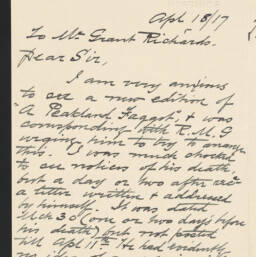 Apl 18/17
To Mr Grant Richards.
Dear Sir,
I am very anxious
to see a new edition of
"A Peakland Faggot, & was
corresponding with R. M. G
urging him to try to arrange
this. I was much shocked
to see notices of his death,
but a day or two after recd
a letter written & addressed
by himself. It was dated
Mch 30 (one or two days before
his death) but not posted
till Apl 11th. He had evidently
no idea of